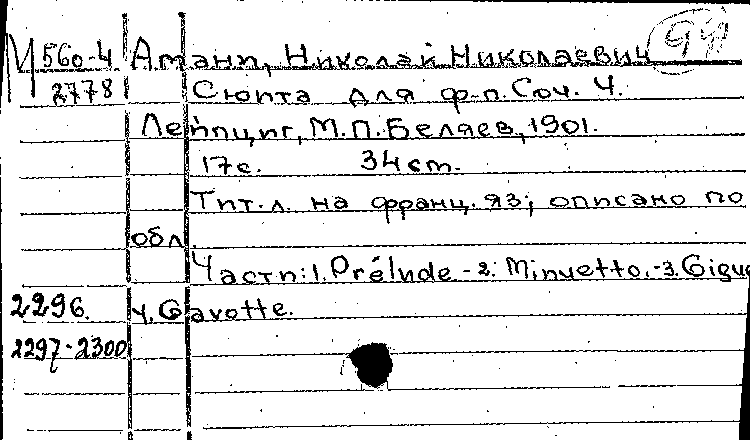 М 560-4 Амани, Николай Николаевич
2778 Сюита для ф-п. Соч. 4.
Лейпциг, М.П.Беляев, 1901.
17с. 34 cm.
Тит.л. на франц. яз; описано по
обл.
Части: 1. Prélude - 2. Minuetto. - 3. Gigue
2296. 4. Gavotte.
2297-2300